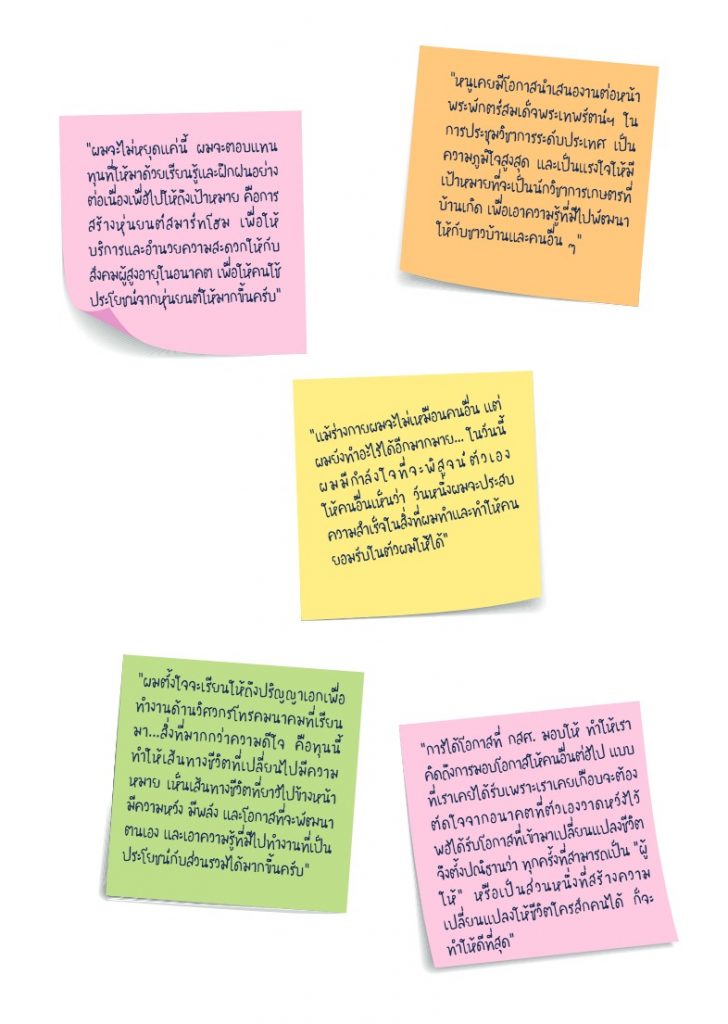 "ผมจะไม่หยุดแค่นี้ ผมจะตอบแทน
ทุนที่ให้มาด้วยเรียนรู้และฝึกฝนอย่าง
ต่อเนื่องเพื่อไปให้ถึงเป้าหมาย คือการ
สร้างหุ่นยนต์สมาร์ทโฮม เพื่อให้
บริการและอำนวยความสะดวกให้กับ
สังคมผู้สูงอายุในอนาคต เพื่อให้คนใช้
ประโยชน์จากหุ่นยนต์ให้มากขึ้นครับ"
"หนูเคยมีโอกาสนำเสนองานต่อหน้า
พระพักตร์สมเด็จพระเทพรัตน์ฯ ใน
การประชุมวิชาการระดับประเทศ เป็น
ความภูมิใจสูงสุด และเป็นแรงใจให้มี
เป้าหมายที่จะเป็นนักวิชาการเกษตรที่
บ้านเกิด เพื่อเอาความรู้ที่มีไปพัฒนา
ให้กับชาวบ้านและคนอื่น ๆ"
"แม้ร่างกายผมจะไม่เหมือนคนอื่น แต่
ผมยังทำอะไรได้อีกมากมาย... ในวันนี้
ผมมีกำลังใจที่จะพิสูจน์ตัวเอง
ให้คนอื่นเห็นว่า วันหนึ่งผมจะประสบ
ความสำเร็จในสิ่งที่ผมทำและทำให้คน
ยอมรับในตัวผมให้ได้"
"ผมตั้งใจจะเรียนให้ถึงปริญญาเอกเพื่อ
ทำงานด้านวิศวกรโทรคมนาคมที่เรียน
มา...สิ่งที่มากกว่าความดีใจ คือทุนนี้
ทำให้เส้นทางชีวิตที่เปลี่ยนไปมีความ
หมาย เห็นเส้นทางชีวิตที่ยาวไปข้างหน้า
มีความหวัง มีพลัง และโอกาสที่จะพัฒนา
ตนเอง และเอาความรู้ที่มีไปทำงานที่เป็น
ประโยชน์กับส่วนรวมได้มากขึ้นครับ"
"การได้โอกาสที่ กสศ. มอบให้ ทำให้เรา
คิดถึงการมอบโอกาสให้คนอื่นต่อไป แบบ
ที่เราเคยได้รับเพราะเราเคยเกือบจะต้อง
ตัดใจจากอนาคตที่ตัวเองวาดหวังไว้
พอได้รับโอกาสที่เข้ามาเปลี่ยนแปลงชีวิต
จึงตั้งปณิธานว่า ทุกครั้งที่สามารถเป็น "ผู้
ให้" หรือเป็นส่วนหนึ่งที่สร้างความ
เปลี่ยนแปลงให้ชีวิตใครสักคนได้ ก็จะ
ทำให้ดีที่สุด"